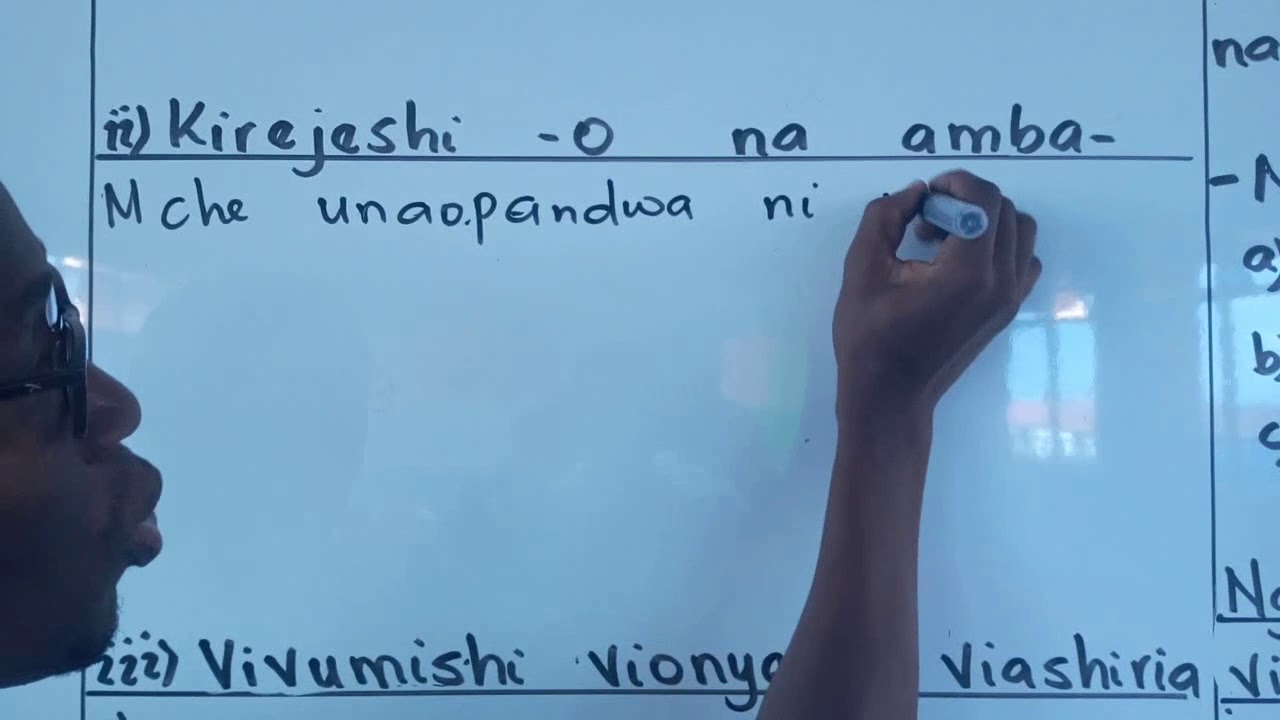 ii) Kirejeshi -O na amba-
Mche unaopandwa ni
iii) Vivumishi viashiria
na
a)
b)